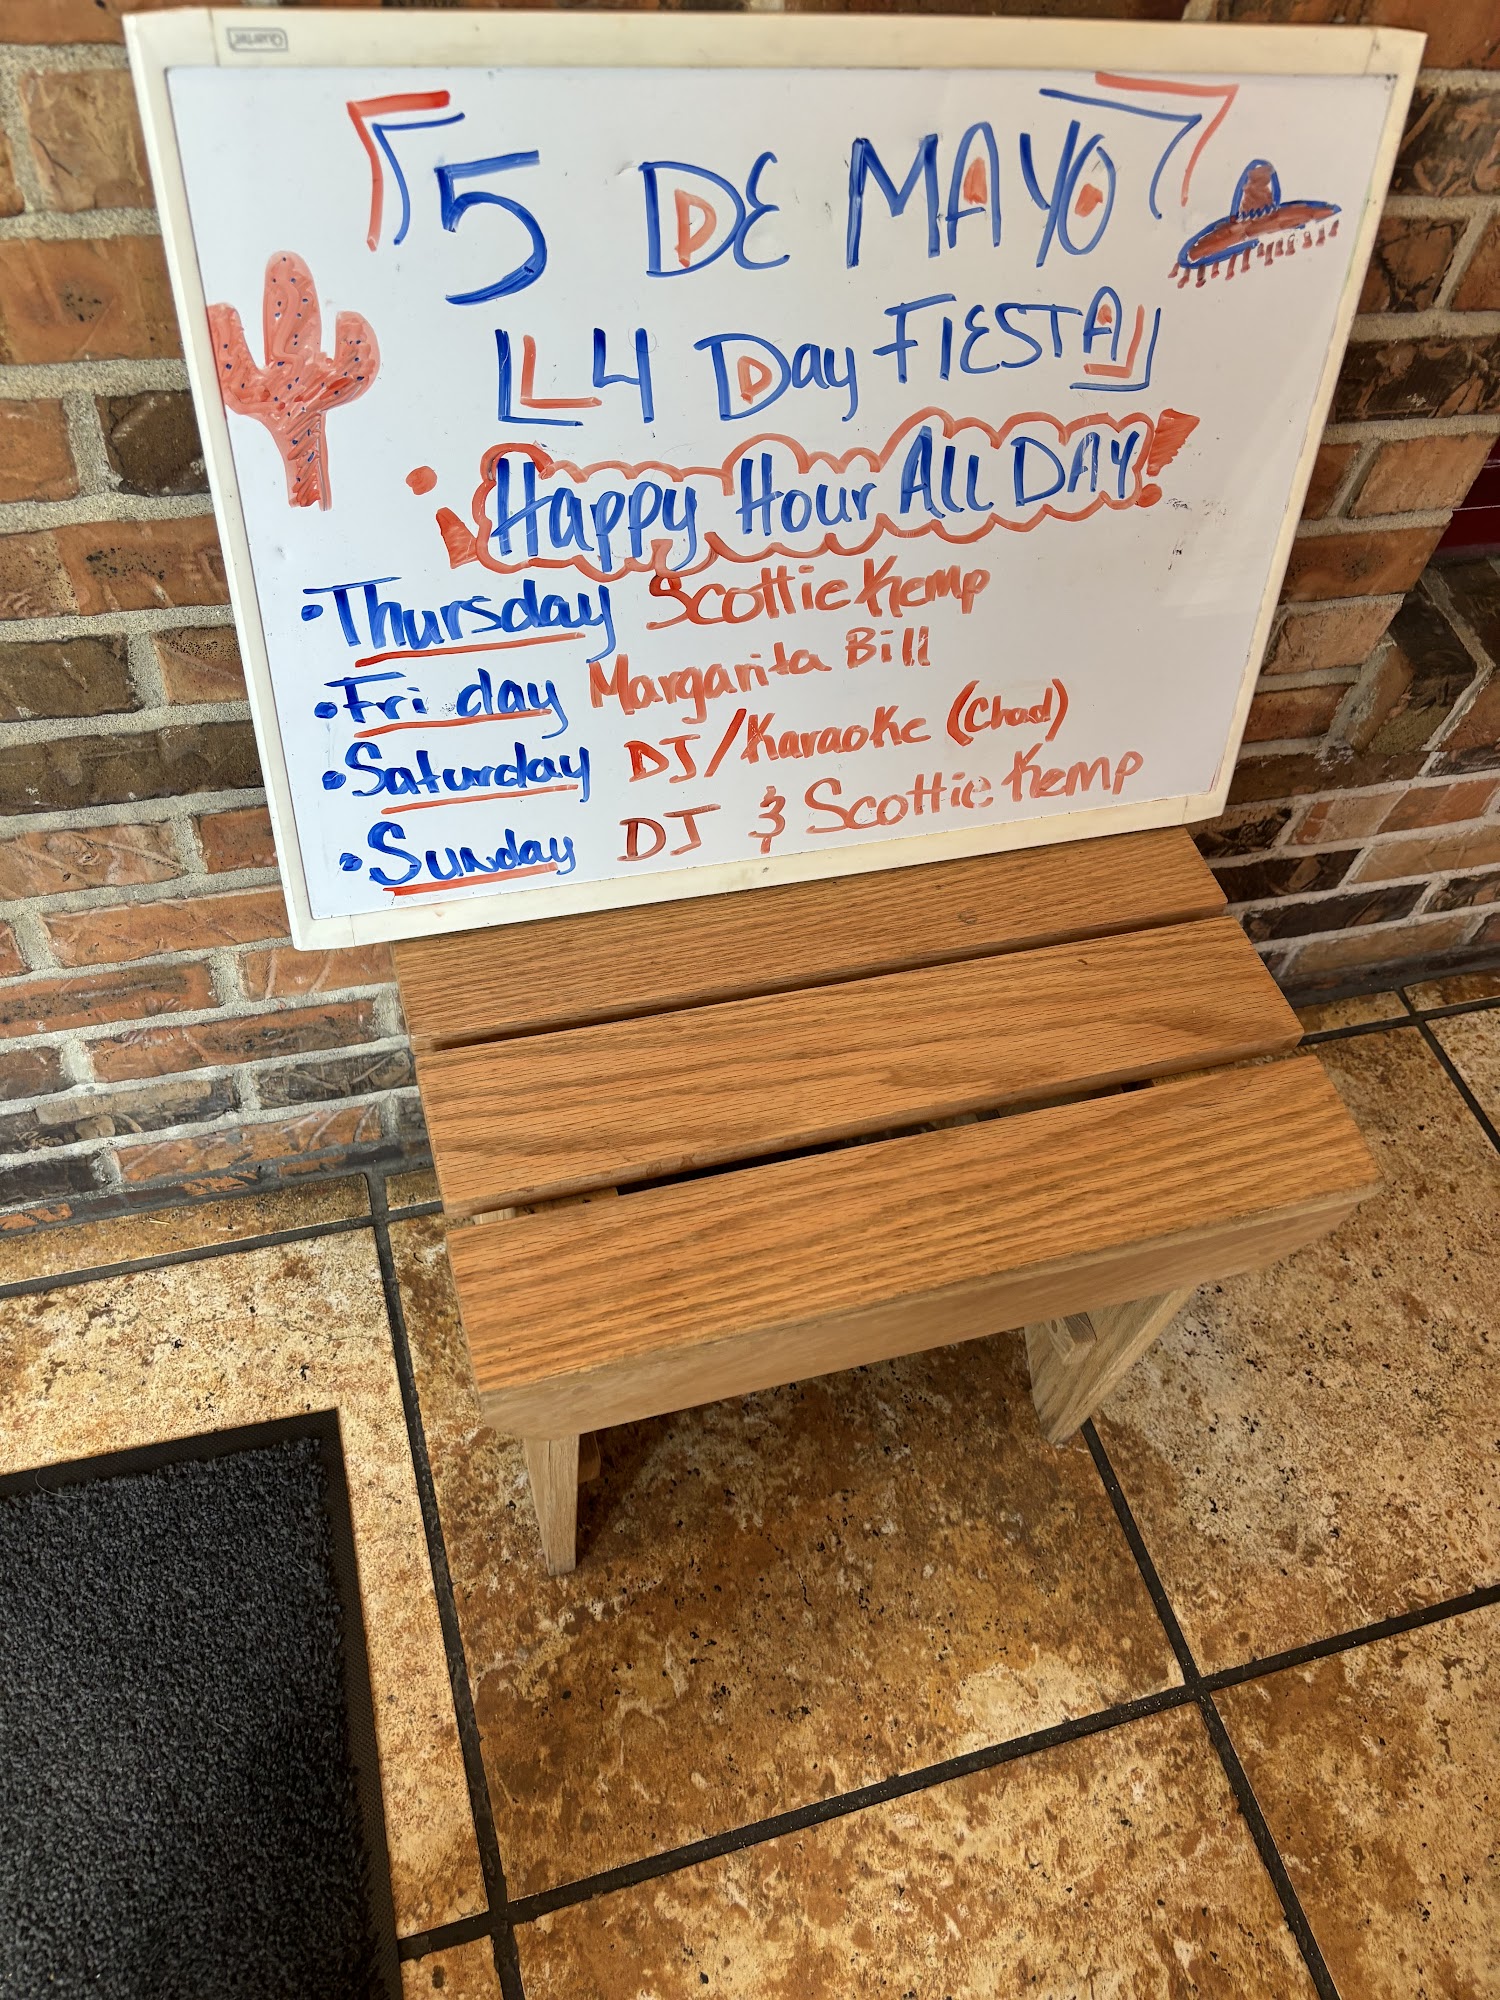 Quartet
5 DE MAYO
4 Day FIESTA
Happy Hour All DAY!
• Thursday Scottie Kemp
• Friday Margarita Bill
• Saturday DJ/Karaoke (Chad)
• Sunday DJ & Scottie Kemp